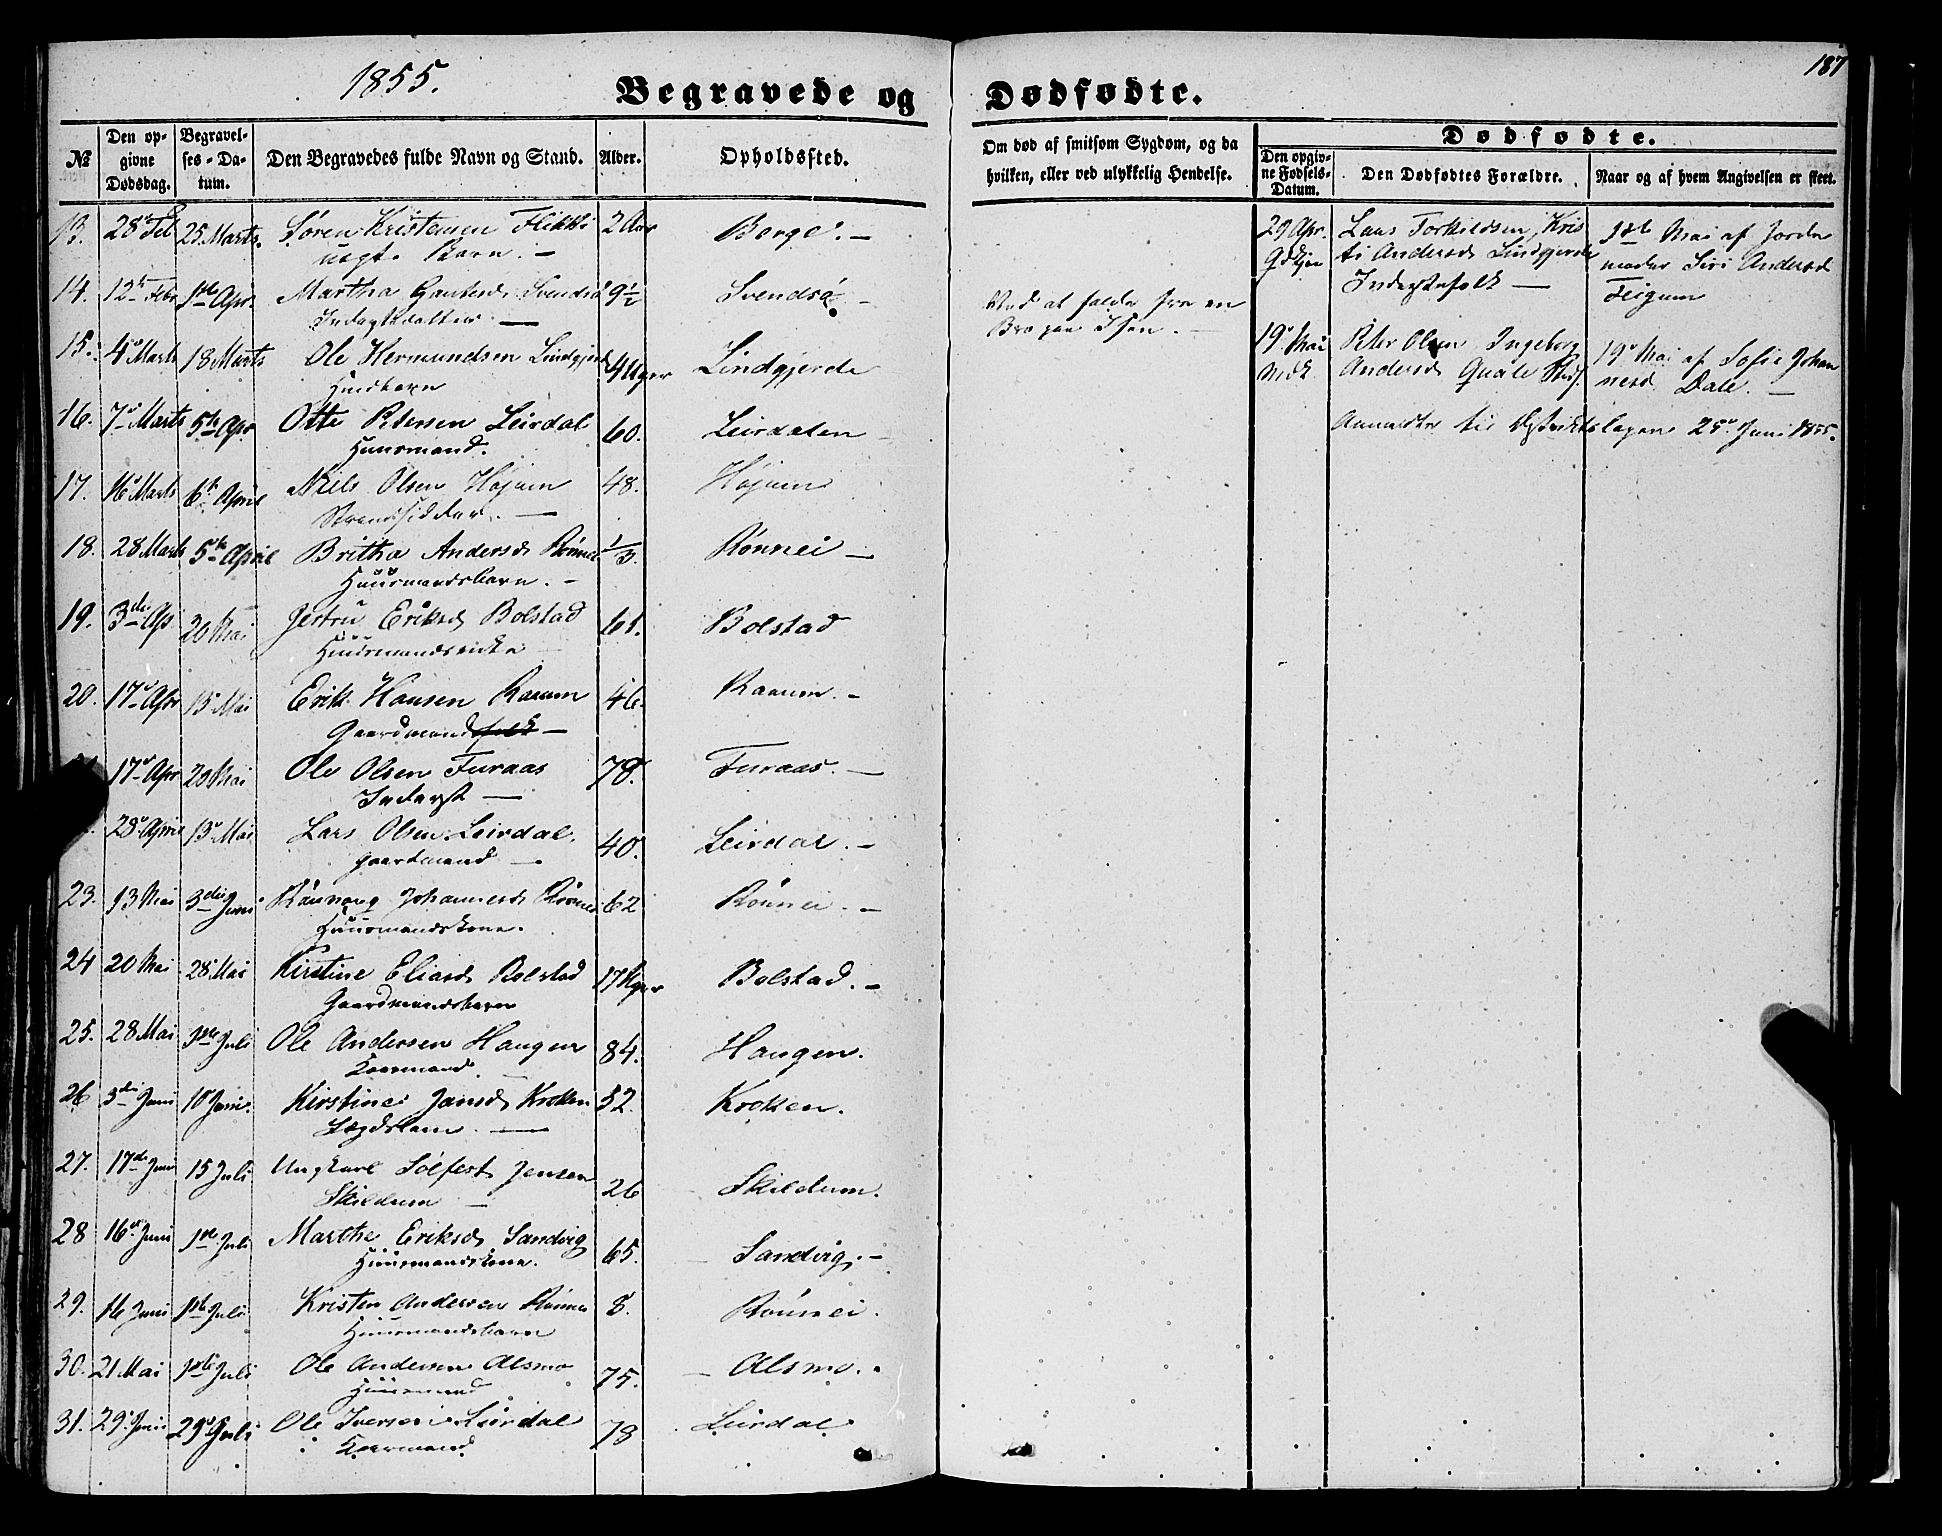 1855.
Begravede og Dødfødte.
187
№
Den op-
givne
Dødsdag.
Begravel-
ses-Da-
tum.
Den Begravedes fulde Navn og Stand.
Alder.
Opholdssted.
Om død af smitsom Sygdom, og da
hvilken, eller ved ulykkelig Hendelse.
Dødfødte.
Den opgiv-
ne Fødsels-
Datum.
Den Dødfødtes Forældre.
Naar og af hvem Angivelsen er skeet.
13. 28de Feb 25 Marts. Søren Kristensen 2 Aar Borge. —
Barn. —
14. 12te Febr 1ste Apr Martha 9½ Svendsø —
Ved at falde fra en
Bro paa Isen. —
15. 4de Marts 18 Marts Ole Hermundsen Lindgjerde 4 Uger Lindgjerde
16. 7de Marts 5te Apr Otte Petersen Leirdal 60. Leirdalen
Huusmand.
17. 16de Marts 6te April Niels Olsen Høium 48. Høium
Strandsidder. —
18. 28 Marts 5te April Britha Andersd Rønnei 1/3. Rønnei —
Huusmandsbarn. —
19. 3die Ap 20 Mai Jertru Eriksd Bolstad 61. Bolstad
Huusmandsenke
20. 17de Apr 13 Mai Erik Hansen Raaum 46. Raaum. —
Gaardmandsfolk —
17de Apr 20 Mai Ole Olsen Furaas 78. Furaas. —
Inderst —
28de April 13de Mai Lars Olsen Leirdal. 40. Leirdal. —
Gaardmand —
23. 13 Mai 3die Juni Rønnaug Johannesd Rønnei 62 Rønnei. —
Huusmandskone.
24 20 Mai 28 Mai Kirstine Eliasd Bolstad 17 Uger Bolstad. —
Gaardmandsbarn
25. 28 Mai 1ste Juli Ole Andersen Haugen 84. Haugen.
Kaarmand
26 3die Juni 10 Juni. Kirstine Jansd Kroken 52. Kroken.
Lægdslem. —
27. 17de Juni 15 Juli Ungkarl Solfest Jensen 26 Skildum.
Skildum —
28 16de Juni 1ste Juli Marthe Eriksd Sandvig 65. Sandvig. —
Huusmandskone.
29. 16 Juni 1ste Juli Kristen Andersen Rønnei 8. Rønnei.
Huusmandsbarn
30. 21 Mai 1ste Juli Ole Andersen Alsmo 75. Alsmo.
Huusmand
31. 29de Juni 29de Juli Ole Iversen Leirdal 78 Leirdal
Kaarmand
29 Apr. Lars Torkildsen, Kris 1ste Mai af Jorde
ti Andersd Lindgjerde moder Siri Andersd
Inderstfolk — Feigum
19de Mai Peter Olsen Ingeborg 19de Mai af Sofie Johan
Andersd Quale nesd Dale. —
Anmeldte til Distriktslægen 25de Juni 1855.